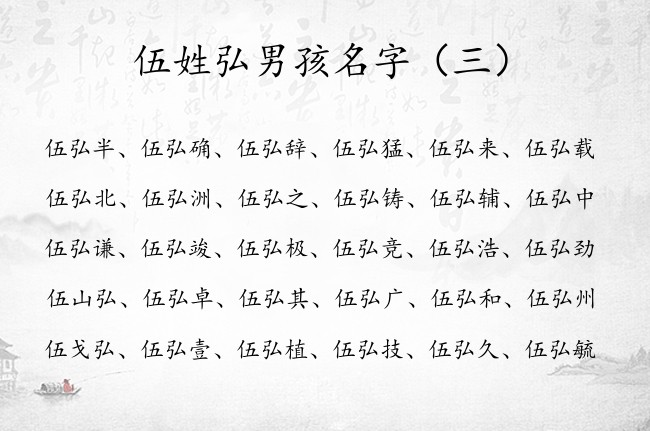 伍姓弘男孩名字（三）
伍弘半、伍弘确、伍弘辞、伍弘猛、伍弘来、伍弘载
伍弘北、伍弘洲、伍弘之、伍弘铸、伍弘辅、伍弘中
伍弘谦、伍弘竣、伍弘极、伍弘竞、伍弘浩、伍弘劲
伍山弘、伍弘卓、伍弘其、伍弘广、伍弘和、伍弘州
伍戈弘、伍弘壹、伍弘植、伍弘技、伍弘久、伍弘毓